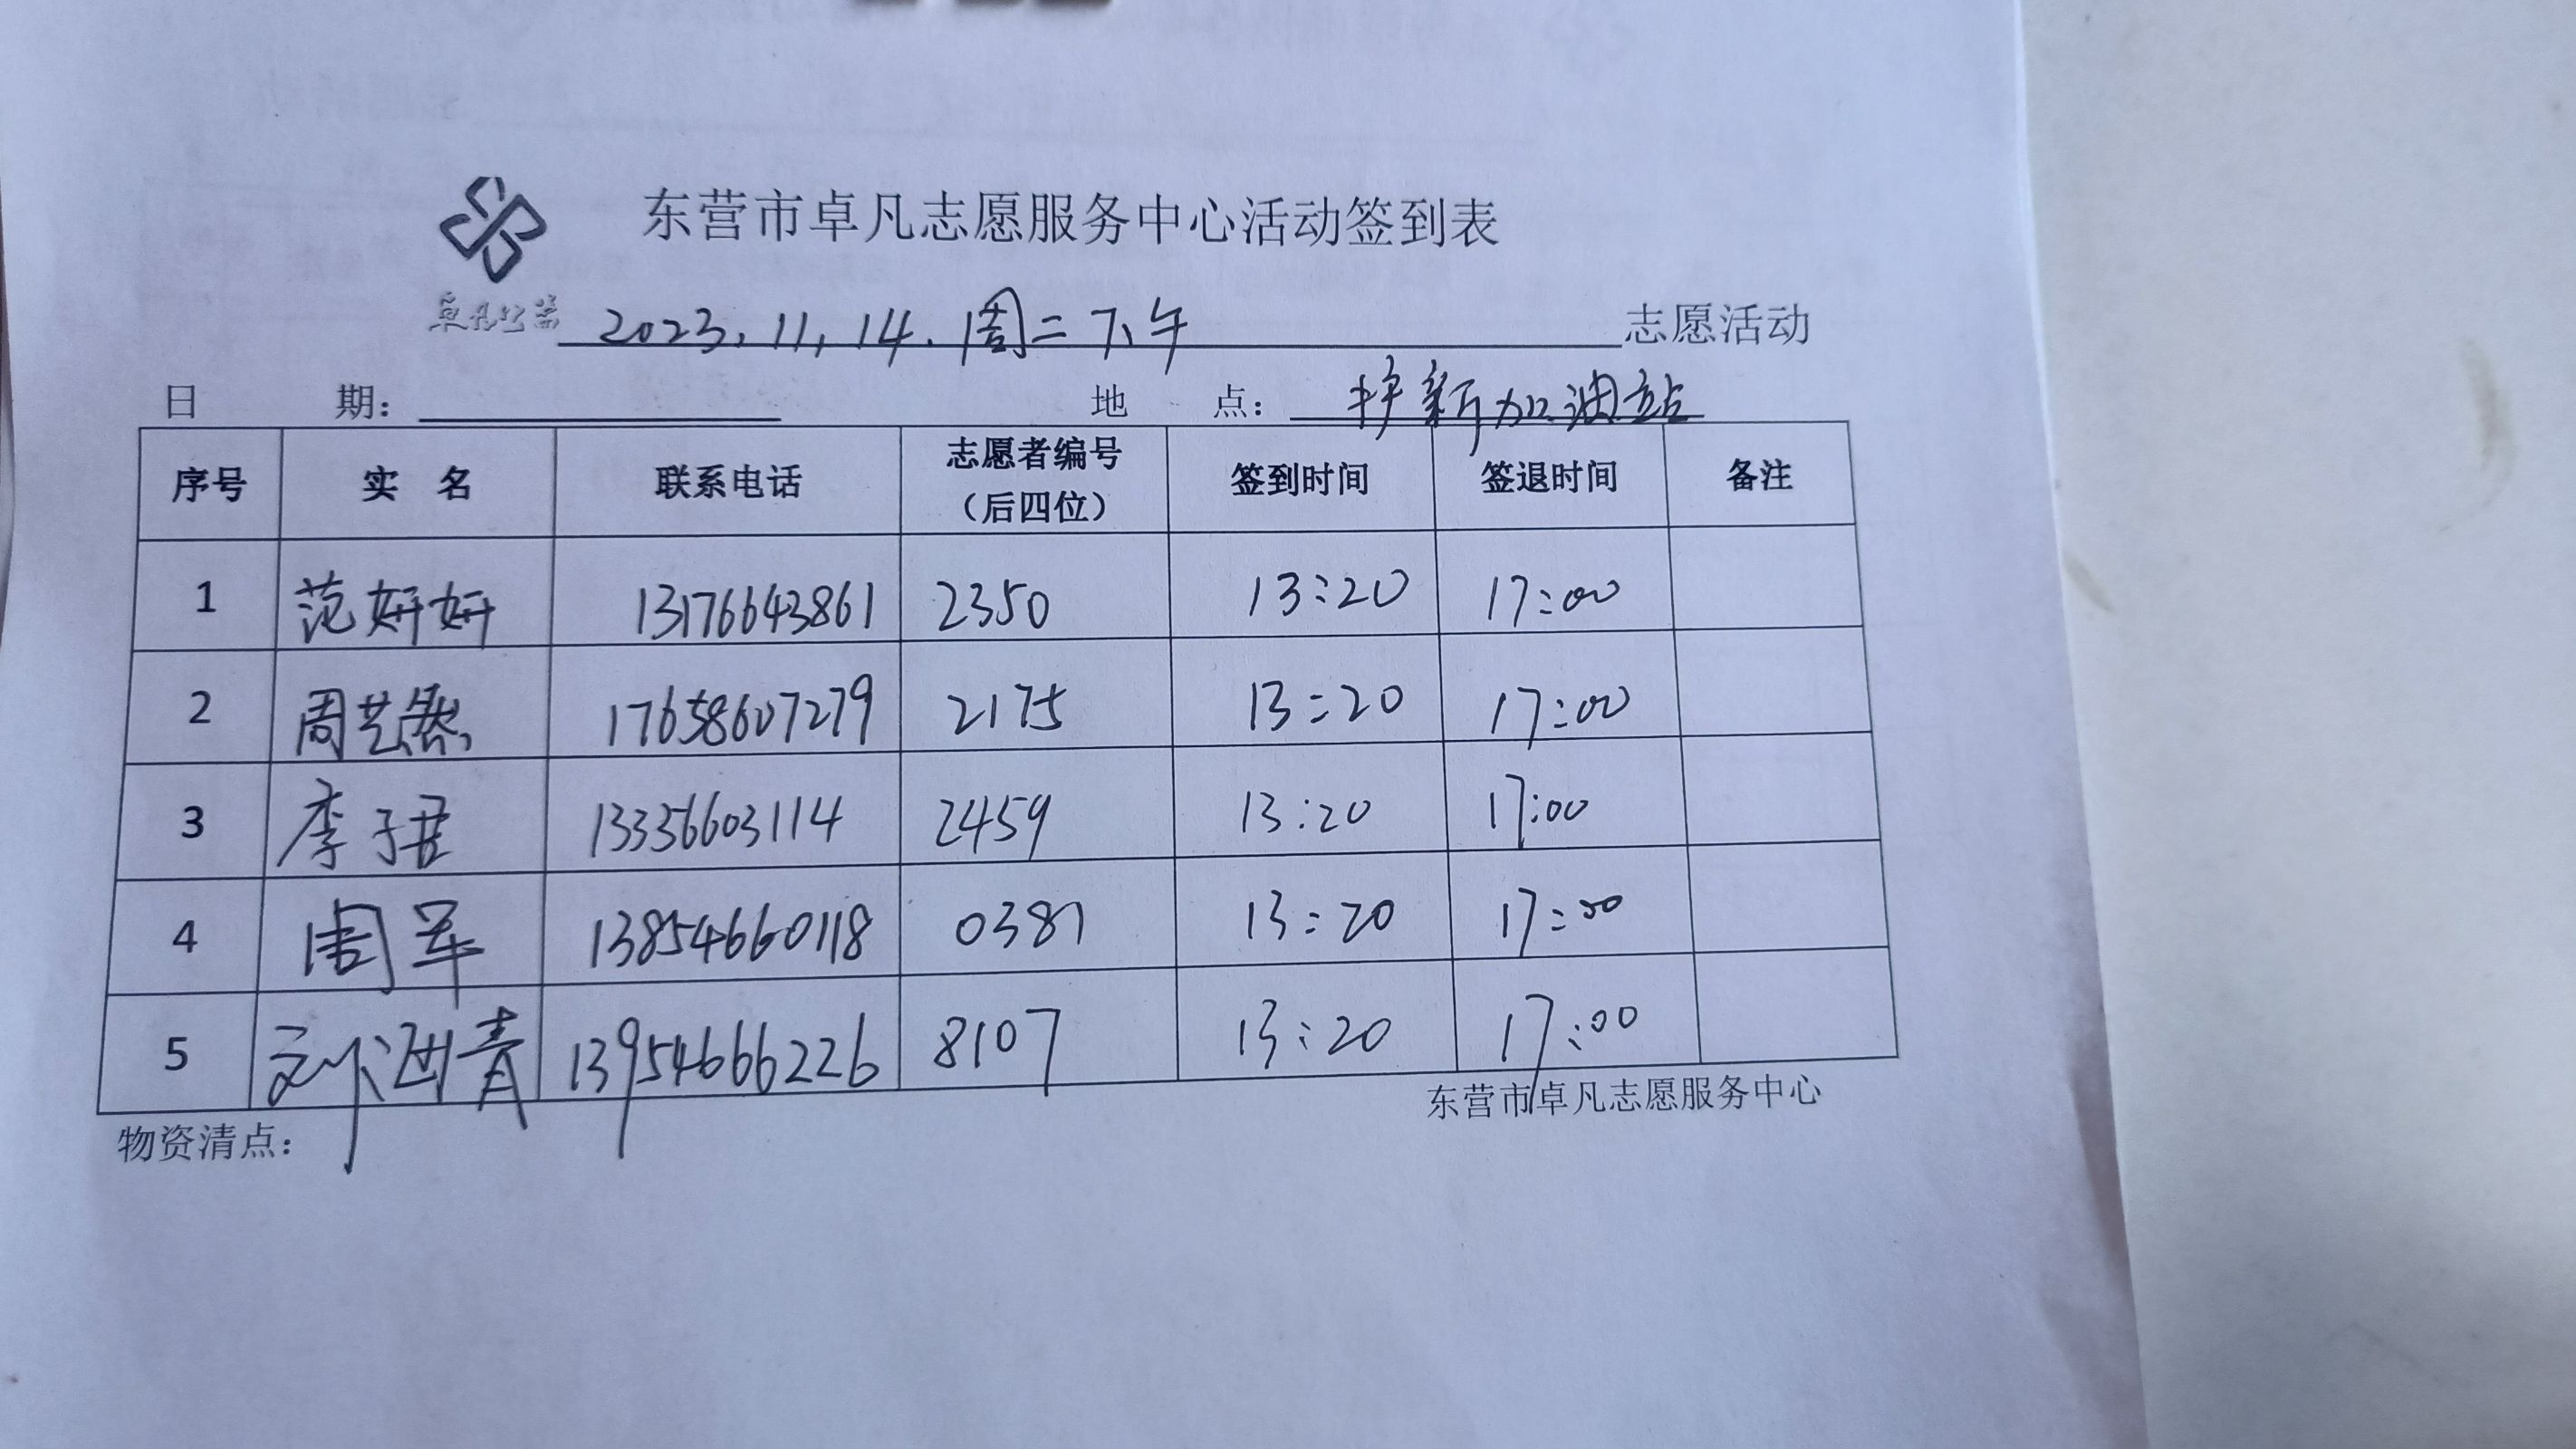 东营市卓凡志愿服务中心活动签到表
卓凡公益 2023.11.14.周二下午 志愿活动
日 期： 地 点： 护新加油站
序号 实 名 联系电话 志愿者编号（后四位） 签到时间 签退时间 备注
1 范妍妍 13176643861 2350 13:20 17:00
2 周艺 17658607279 2175 13:20 17:00
3 李子君 13356603114 2459 13:20 17:00
4 周军 13854660118 0381 13:20 17:00
5 刘 青 13954666226 8107 13:20 17:00
东营市卓凡志愿服务中心
物资清点：